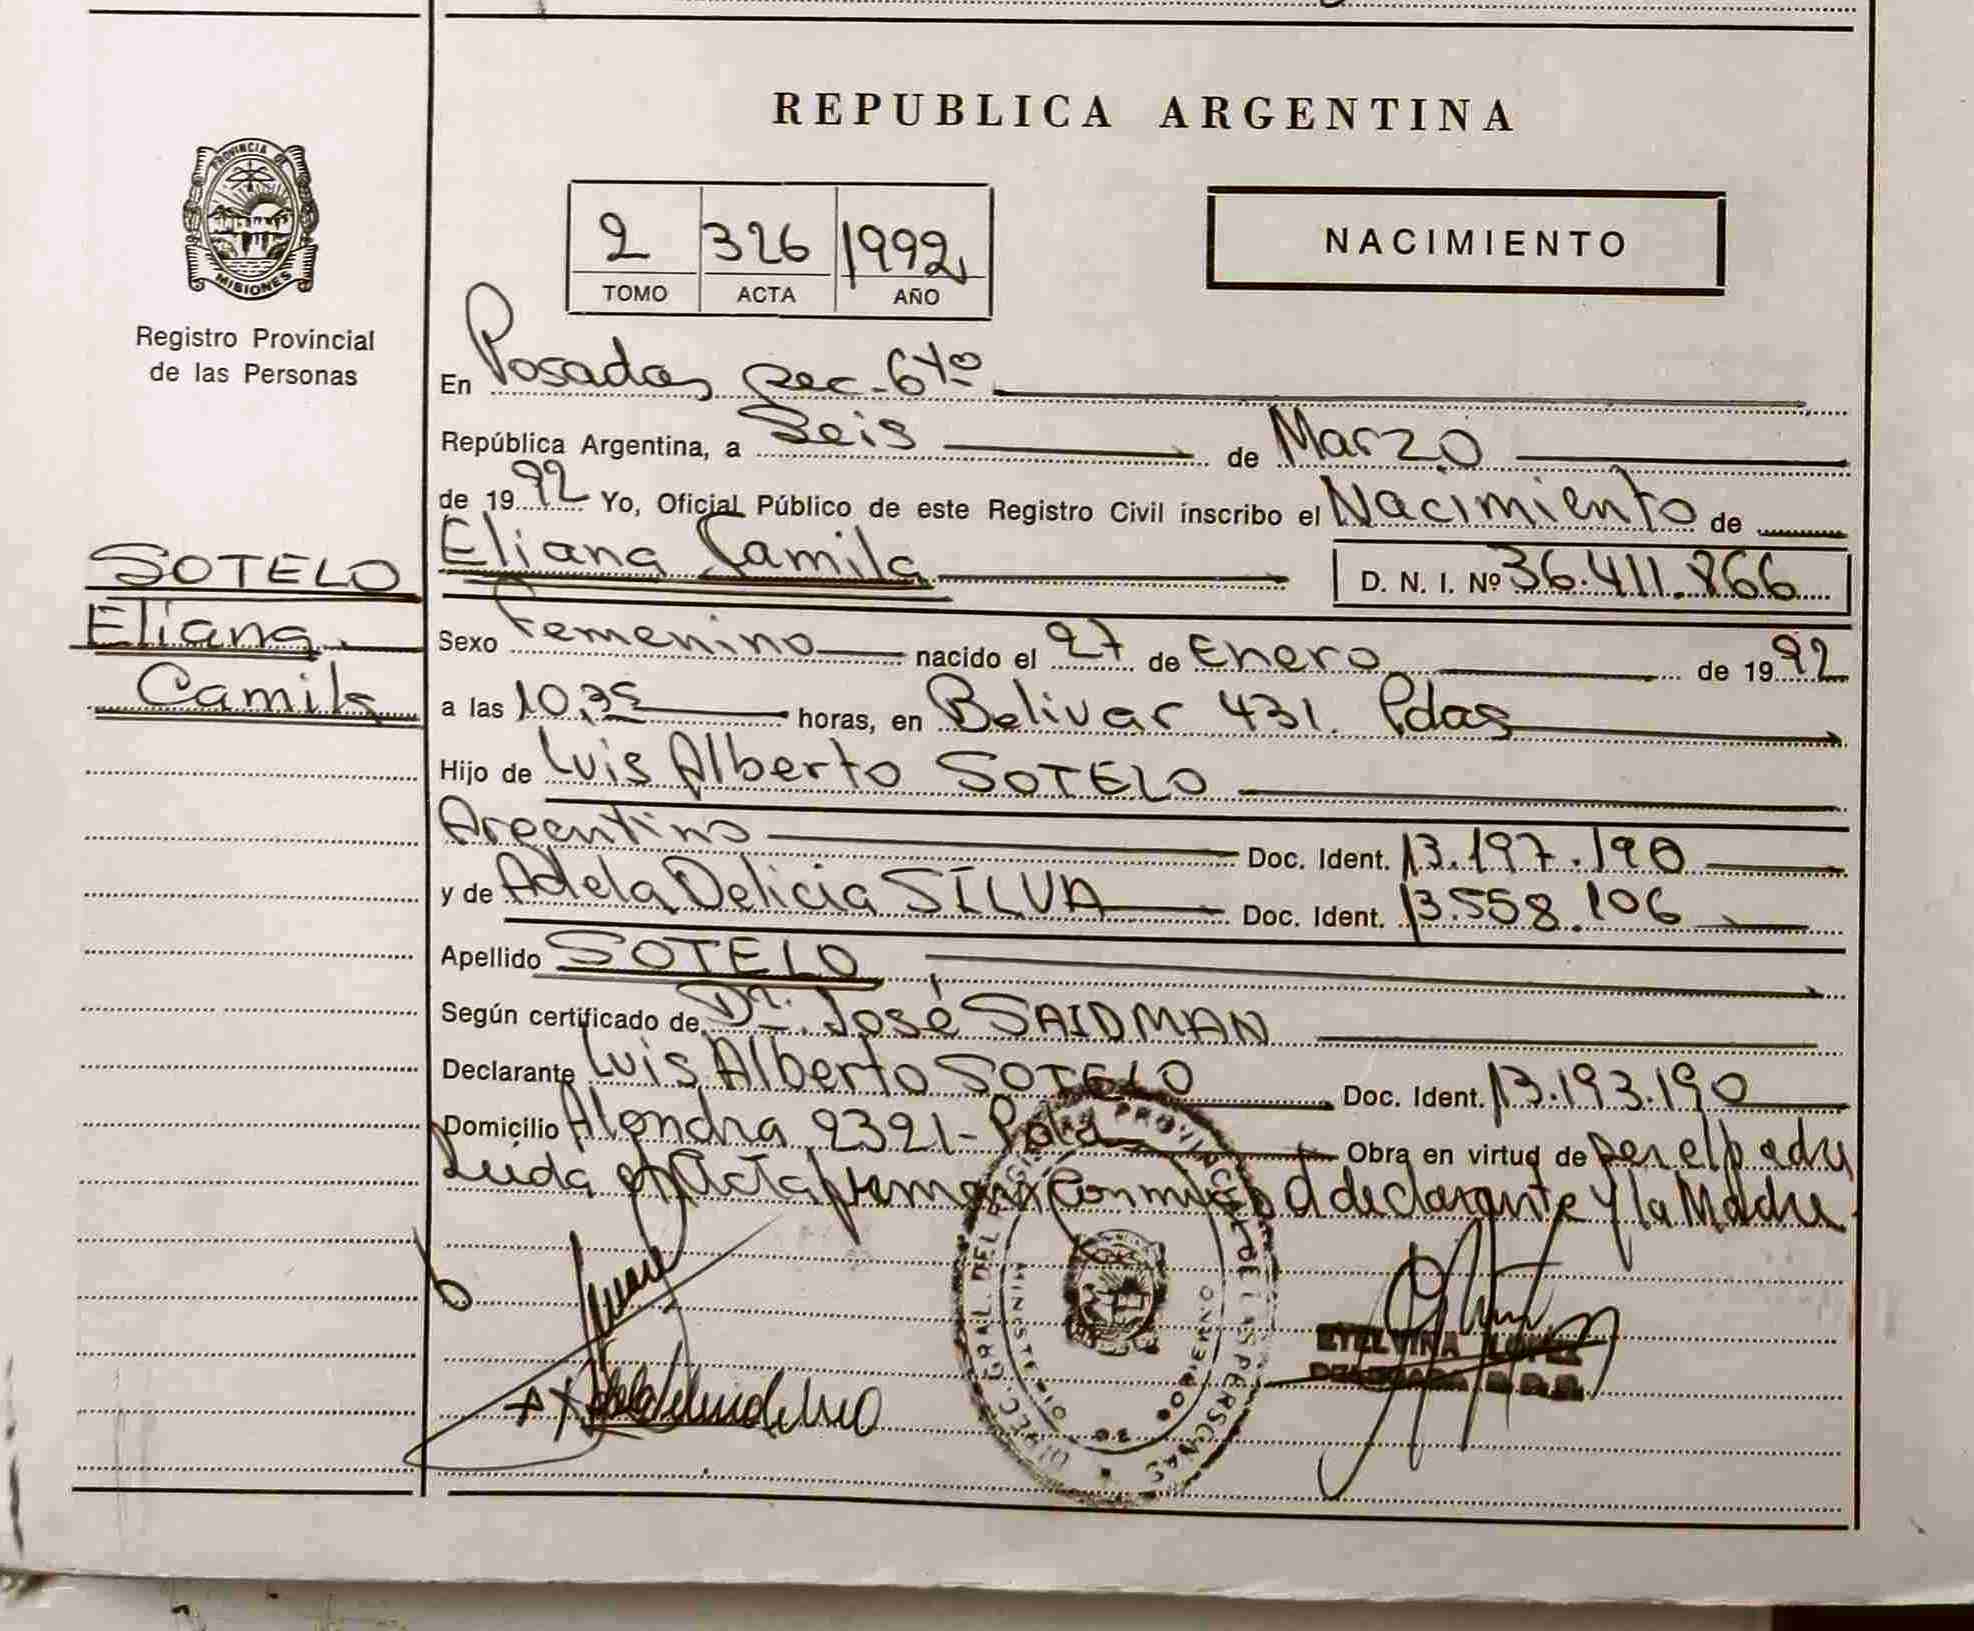 REPUBLICA ARGENTINA
PROVINCIA DE
MISIONES
Registro Provincial
de las Personas
2 326 1992
TOMO ACTA AÑO
NACIMIENTO
En Posadas sec. 6ta
República Argentina, a Seis de Marzo
de 1992 Yo, Oficial Público de este Registro Civil inscribo el Nacimiento de
SOTELO
Eliana
Camila
Eliana Camila D. N. I. Nº 36.411.866
Sexo Femenino nacido el 27 de Enero de 1992
a las 10,35 horas, en Bolivar 431. Pdas
Hijo de Luis Alberto SOTELO
Argentino Doc. Ident. 13.197.190
y de Adela Delicia SILVA Doc. Ident. 13.558.106
Apellido SOTELO
Según certificado de Dr. José SAIDMAN
Declarante Luis Alberto SOTELO Doc. Ident. 13.193.190
Domicilio Alondra 2321- Obra en virtud de ser el padre
Leida el Acta firman conmigo el declarante y la Madre
DIREC. GRAL. DEL REGISTRO PROVINCIAL DE LAS PERSONAS
MINISTERIO DE GOBIERNO
ETELVINA LOPEZ